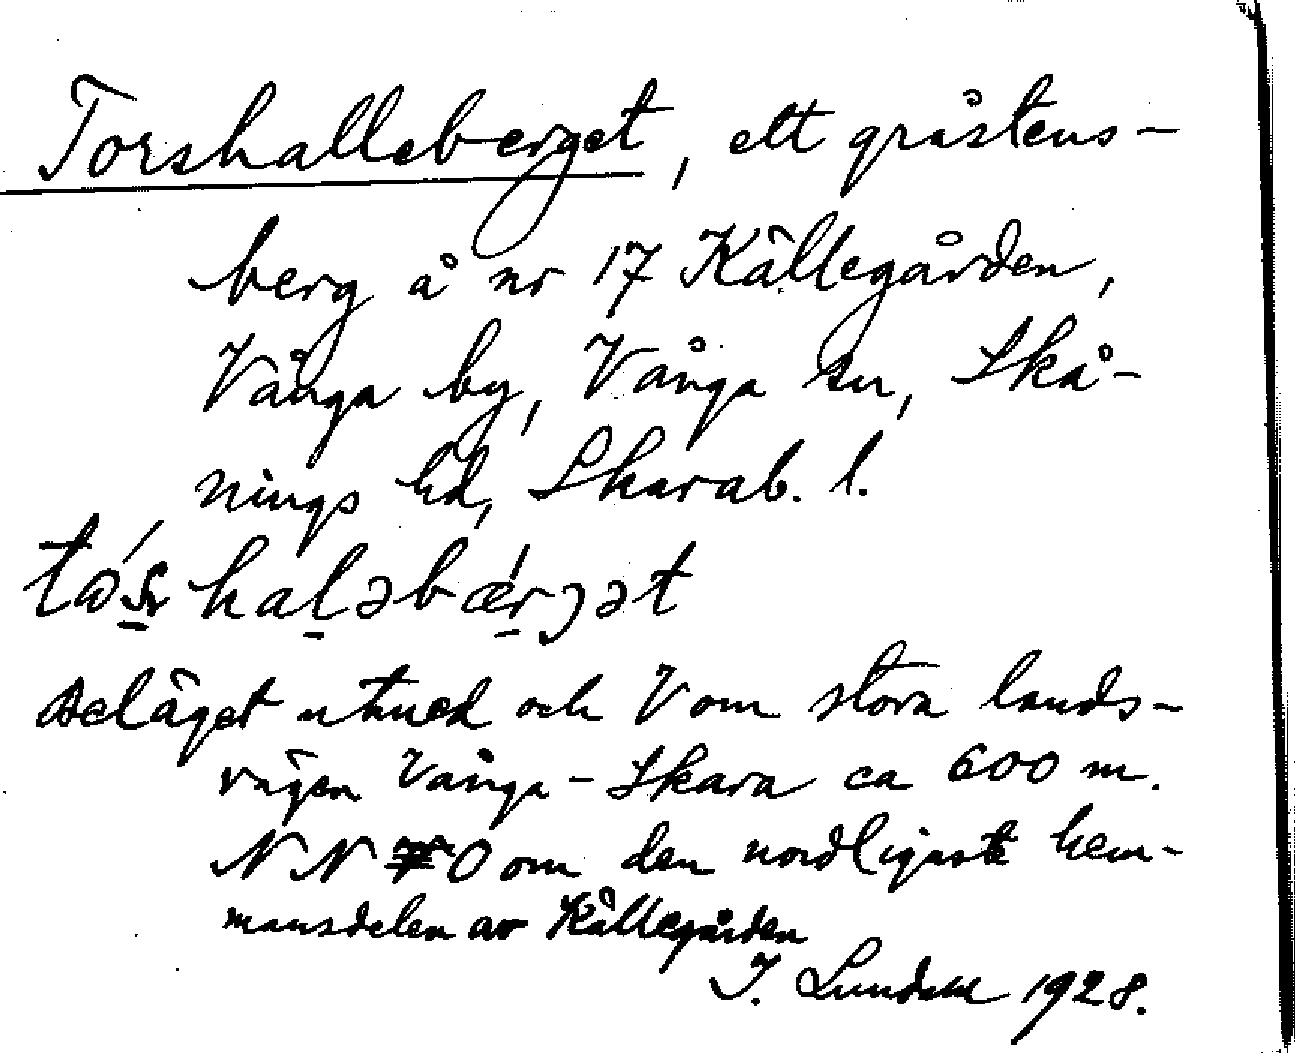 Torshalleberget, ett gråstens-
berg å nr 17 Källegården,
Vånga by, Vånga sn, Skå-
nings hd, Skarab. l.
beläget utmed och V om stora lands-
vägen Vånga - Skara ca 600 m.
NN O om den nordligaste hem-
mansdelen av Källegården
I. Lundahl 1928.